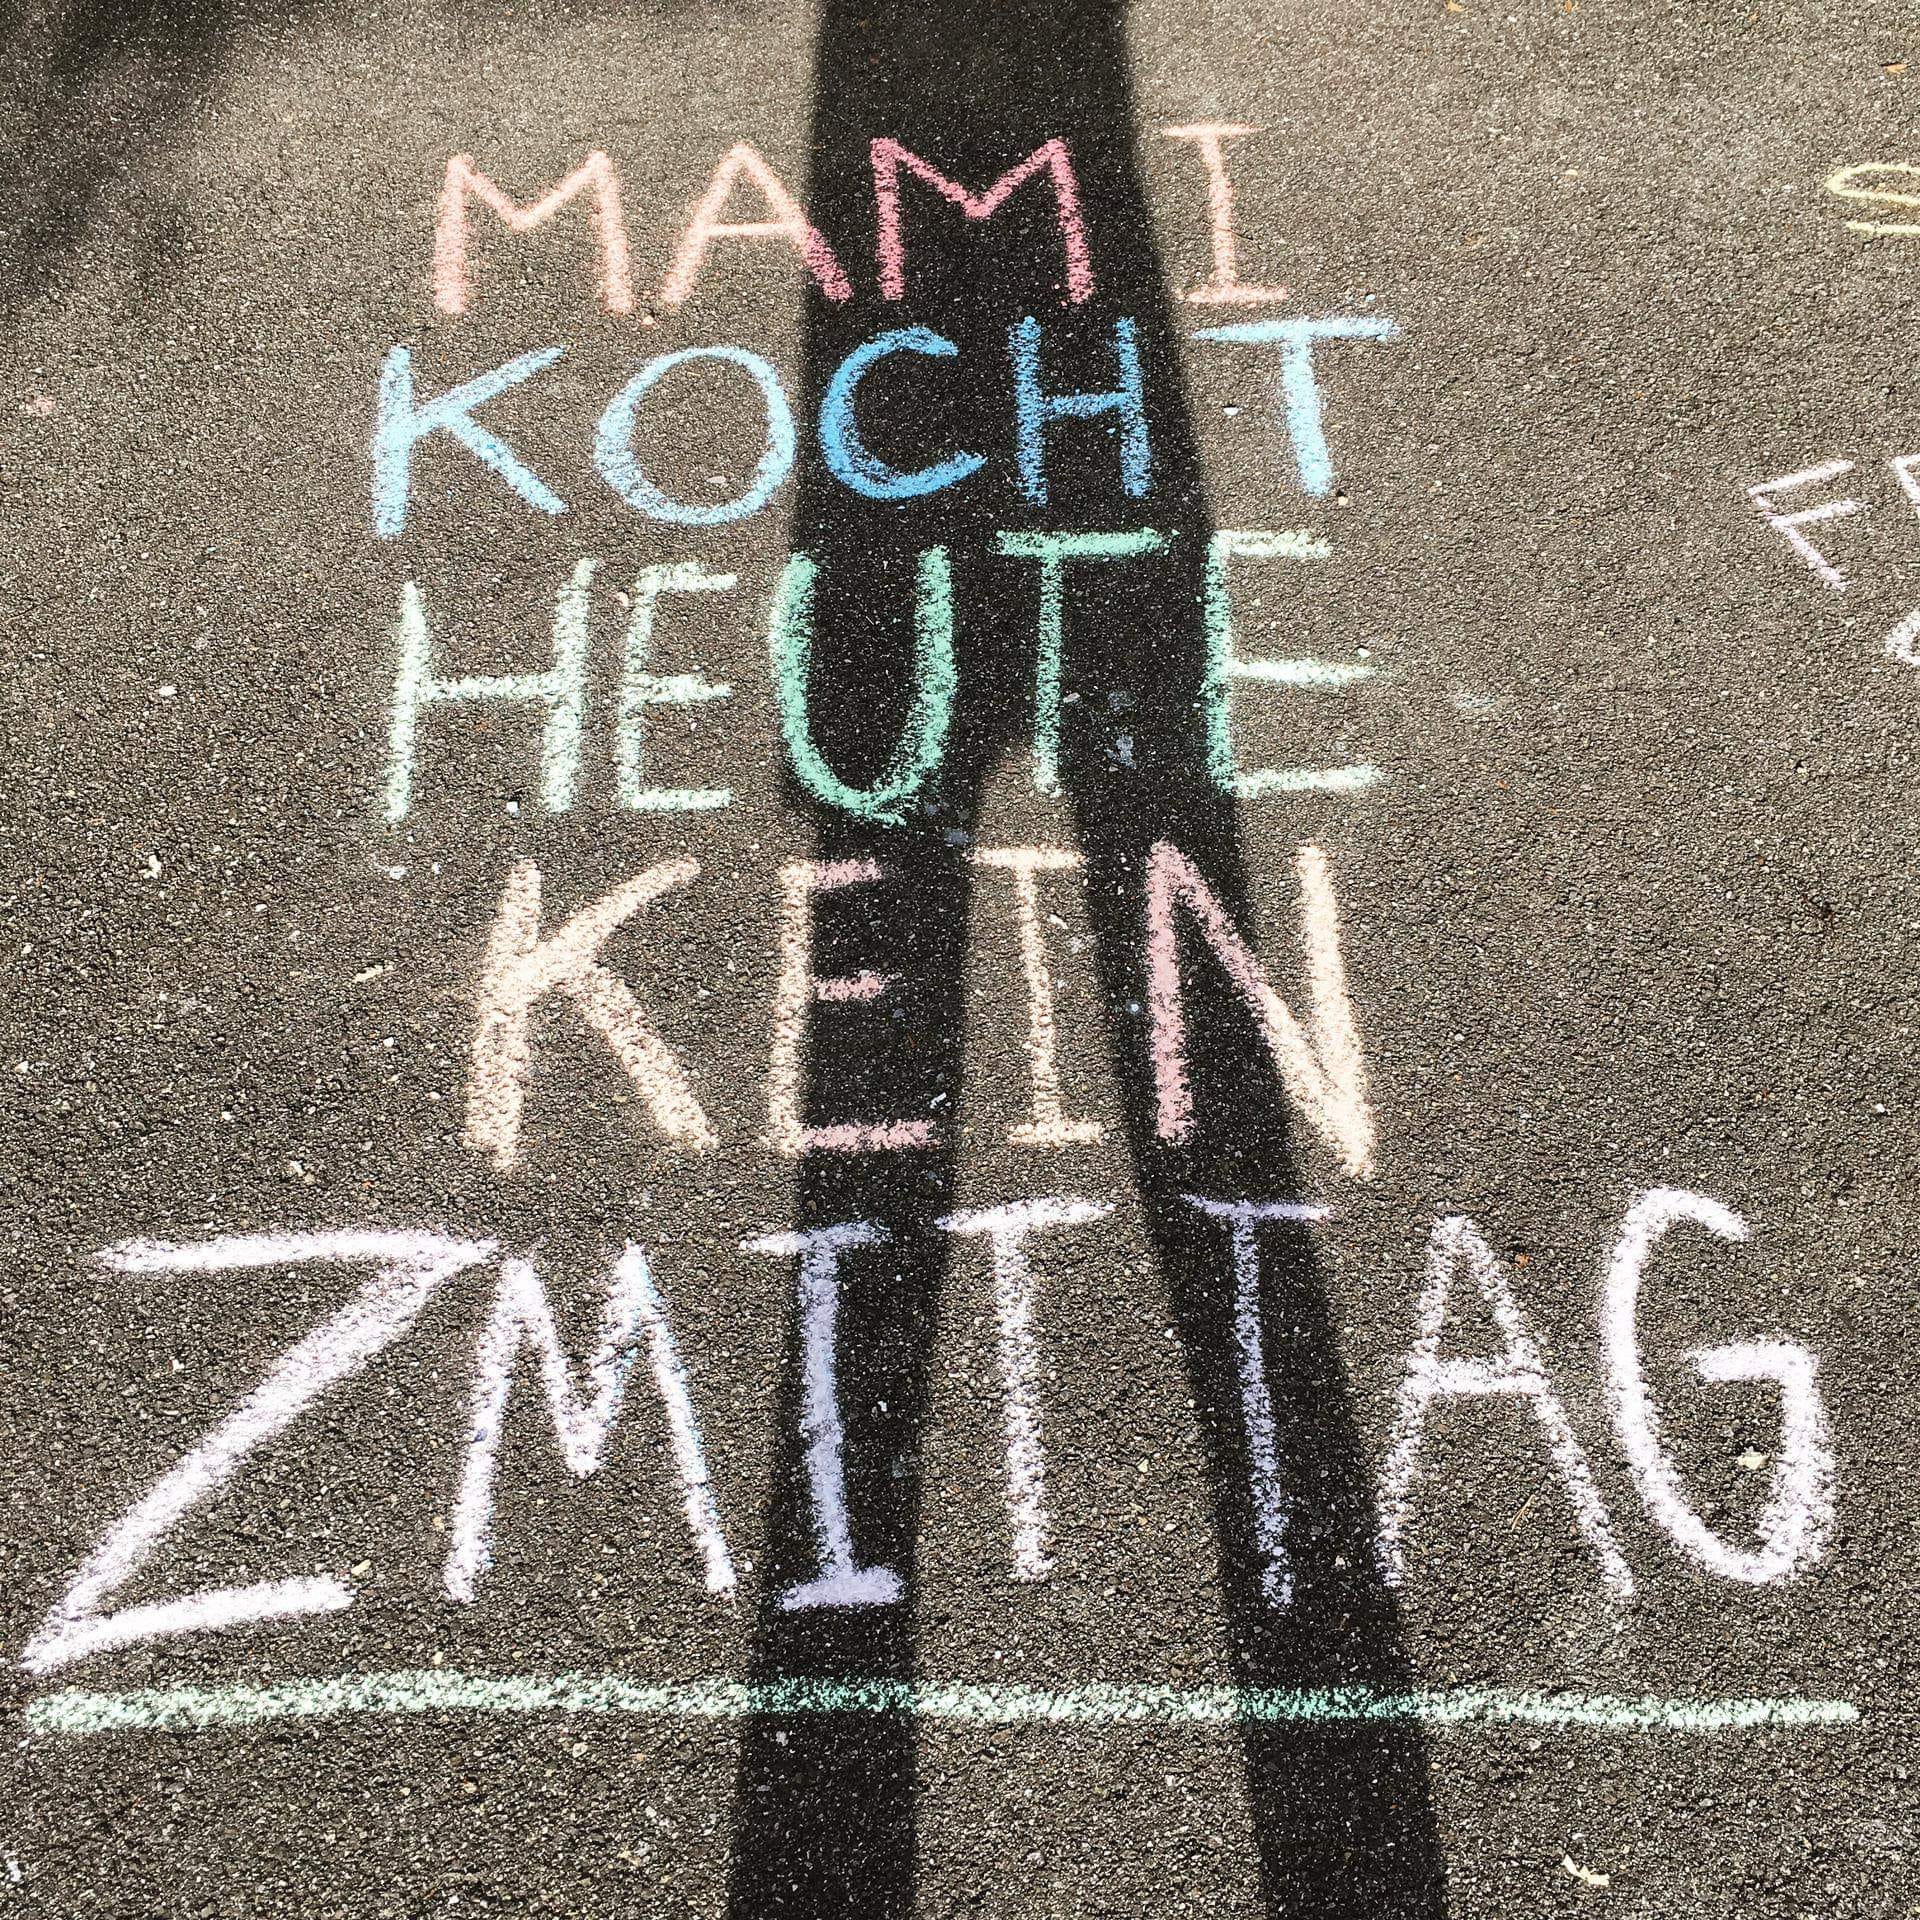 MAMI
KOCHT
HEUTE
KEIN
ZMITTAG